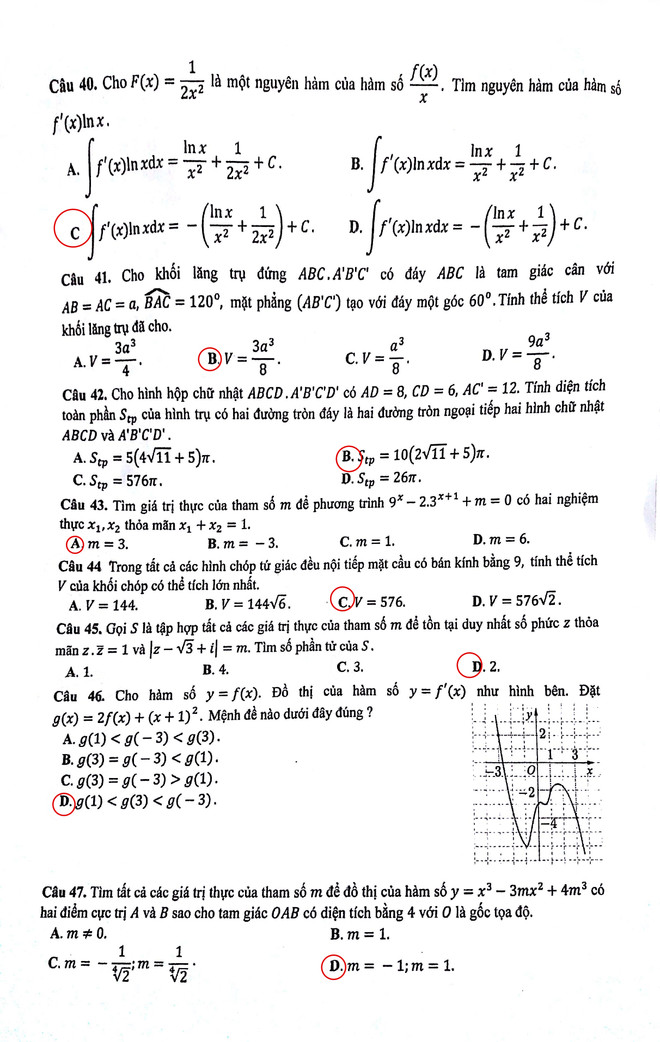 Câu 40. Cho F(x) = 1/(2x²) là một nguyên hàm của hàm số f(x)/x. Tìm nguyên hàm của hàm số
f'(x)ln x.
A. ∫f'(x)ln xdx = ln x/x² + 1/(2x²) + C. B. ∫f'(x)ln xdx = ln x/x² + 1/x² + C.
C ∫f'(x)ln xdx = −(ln x/x² + 1/(2x²)) + C. D. ∫f'(x)ln xdx = −(ln x/x² + 1/x²) + C.
Câu 41. Cho khối lăng trụ đứng ABC.A'B'C' có đáy ABC là tam giác cân với
AB = AC = a, BAC = 120⁰, mặt phẳng (AB'C') tạo với đáy một góc 60⁰. Tính thể tích V của
khối lăng trụ đã cho.
A. V = 3a³/4. B. V = 3a³/8. C. V = a³/8. D. V = 9a³/8.
Câu 42. Cho hình hộp chữ nhật ABCD.A'B'C'D' có AD = 8, CD = 6, AC' = 12. Tính diện tích
toàn phần Stp của hình trụ có hai đường tròn đáy là hai đường tròn ngoại tiếp hai hình chữ nhật
ABCD và A'B'C'D'.
A. Stp = 5(4√11 + 5)π. B. Stp = 10(2√11 + 5)π.
C. Stp = 576π. D. Stp = 26π.
Câu 43. Tìm giá trị thực của tham số m để phương trình 9ˣ − 2.3ˣ⁺¹ + m = 0 có hai nghiệm
thực x₁, x₂ thỏa mãn x₁ + x₂ = 1.
A m = 3. B. m = − 3. C. m = 1. D. m = 6.
Câu 44 Trong tất cả các hình chóp tứ giác đều nội tiếp mặt cầu có bán kính bằng 9, tính thể tích
V của khối chóp có thể tích lớn nhất.
A. V = 144. B. V = 144√6. C. V = 576. D. V = 576√2.
Câu 45. Gọi S là tập hợp tất cả các giá trị thực của tham số m để tồn tại duy nhất số phức z thỏa
mãn z.z̄ = 1 và |z − √3 + i| = m. Tìm số phần tử của S.
A. 1. B. 4. C. 3. D. 2.
Câu 46. Cho hàm số y = f(x). Đồ thị của hàm số y = f'(x) như hình bên. Đặt
g(x) = 2f(x) + (x + 1)². Mệnh đề nào dưới đây đúng ?
A. g(1) < g(− 3) < g(3).
B. g(3) = g(− 3) < g(1).
C. g(3) = g(− 3) > g(1).
D. g(1) < g(3) < g(− 3).
y
2
1 3
−3 O x
−2
−4
Câu 47. Tìm tất cả các giá trị thực của tham số m để đồ thị của hàm số y = x³ − 3mx² + 4m³ có
hai điểm cực trị A và B sao cho tam giác OAB có diện tích bằng 4 với O là gốc tọa độ.
A. m ≠ 0. B. m = 1.
C. m = − 1/⁴√2; m = 1/⁴√2. D. m = − 1; m = 1.